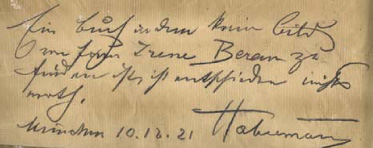 Ein Buch in dem kein Bild
von Frau Irene Beran zu
finden ist, ist entschieden nichts
wert.
München 10.12.21 Habermann